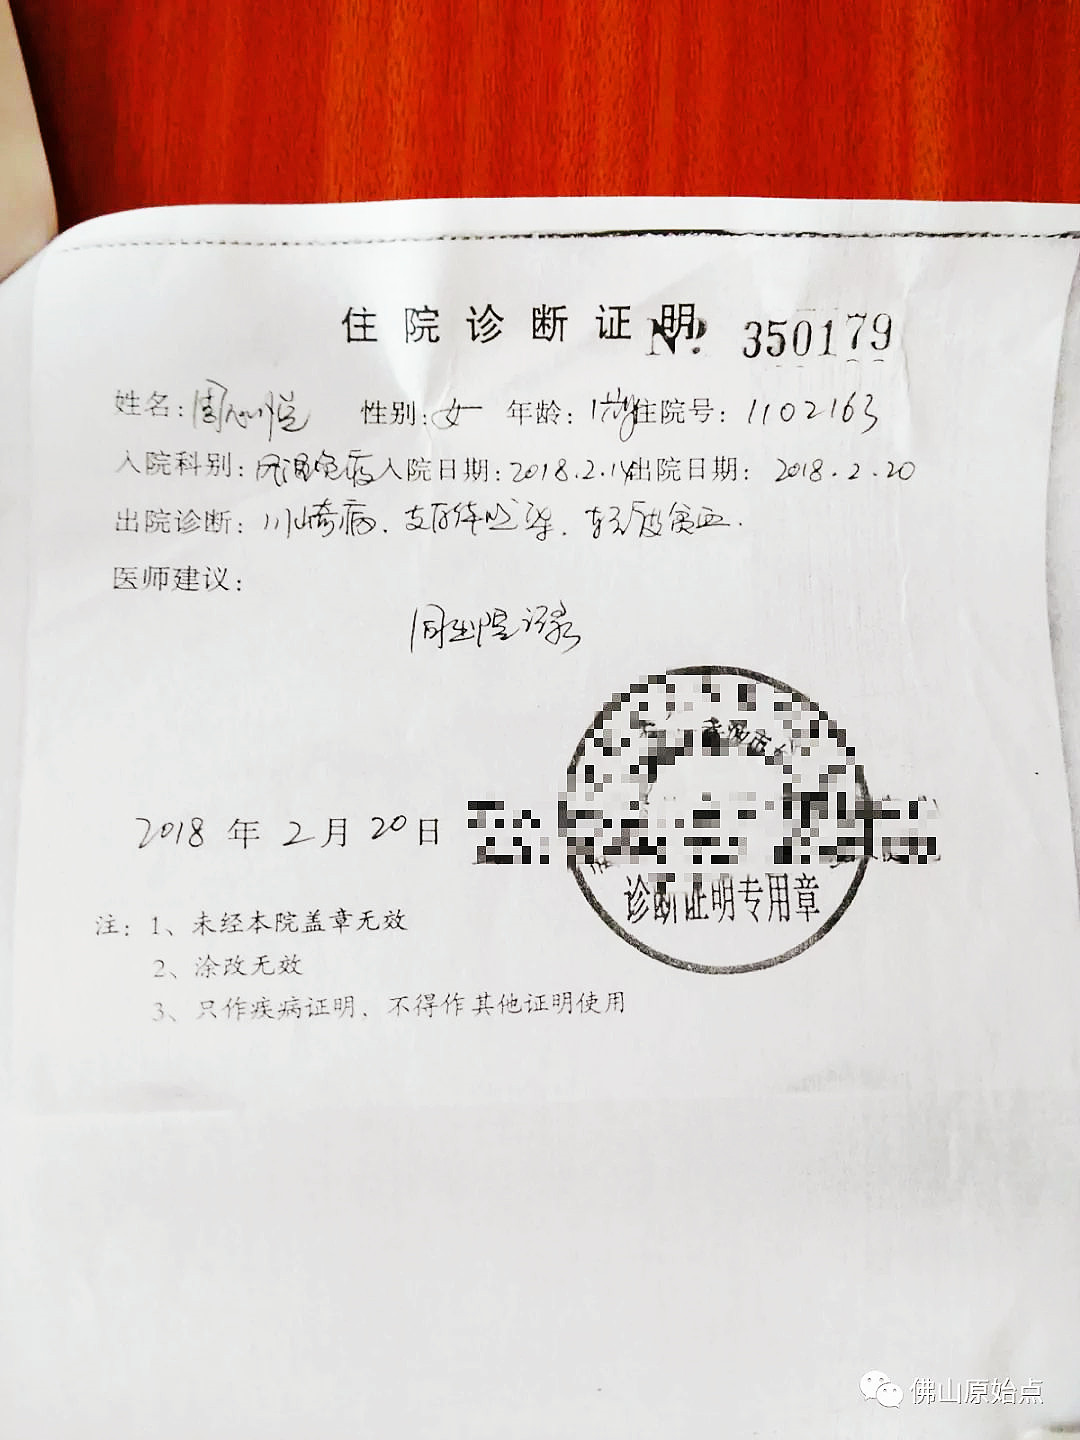 住院诊断证明 № 350179
姓名: 周 悦 性别: 女 年龄: 1岁 住院号: 1102163
入院科别: 风湿免疫 入院日期: 2018.2.14 出院日期: 2018.2.20
出院诊断: 川崎病. 支原体感染. 轻度贫血.
医师建议:
同出院记录
2018 年 2 月 20 日
诊断证明专用章
注: 1、未经本院盖章无效
2、涂改无效
3、只作疾病证明、不得作其他证明使用
佛山原始点